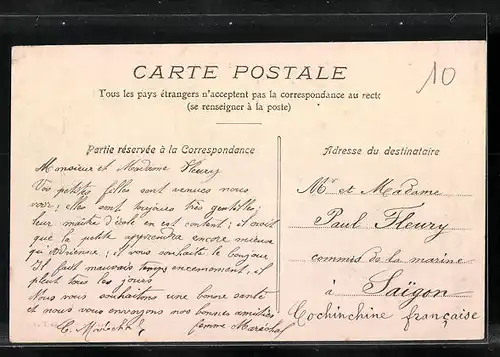 CARTE POSTALE
10
Tous les pays étrangers n'acceptent pas la correspondance au recto
(se renseigner à la poste)
Partie réservée à la Correspondance
Adresse du destinataire
Monsieur et Madame Fleury
Vos petites filles sont venues nous
voir; elles sont toujours très gentilles;
leur maître d'école en est content; il croit
que la petite apprendra encore mieux
qu'Adrienne; il vous souhaite le bonjour
Il fait mauvais temps encemoment, il
pleut tous les jours
Nous vous souhaitons une bonne santé
et nous vous envoyons nos bonne amitiés
C. femme Maréchal
Mr et Madame
Paul Fleury
commis de la marine
à Saïgon
Cochinchine française